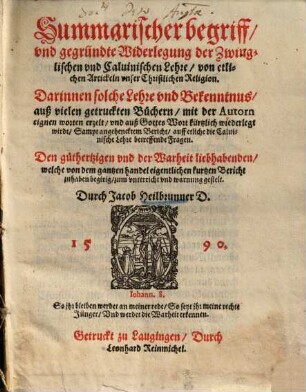 Summarischer begriff/
vnd gegründte Widerlegung der Zwing-
lischen vnd Caluinischen Lehre/ von etli-
chen Artickeln vnser Christlichen Religion.
Darinnen solche Lehre vnd Bekenntnus/
auß vielen getruckten Büchern/ mit der Autorn
eignen worten erzelt/ vnd auß Gottes Wort kürtzlich widerlegt
wirdt/ Sampt angehencktem Bericht/ auff etliche die Caluini-
sche Lehre betreffende Fragen.
Den gůthertzigen vnd der Warheit liebhabenden/
welche von dem gantzen handel eigentlichen kurtzen Bericht
zuhaben begirig/ zum vnterricht vnd warnung gestelt.
Durch Jacob Heilbrunner D.
15 90.
Iohann. 8.
So jhr bleiben werdet an meiner rede/ So seyt jhr meine rechte
Jünger/ Vnd werdet die Warheit erkennen.
Getruckt zu Laugingen/ Durch
Leonhard Reinmichel.